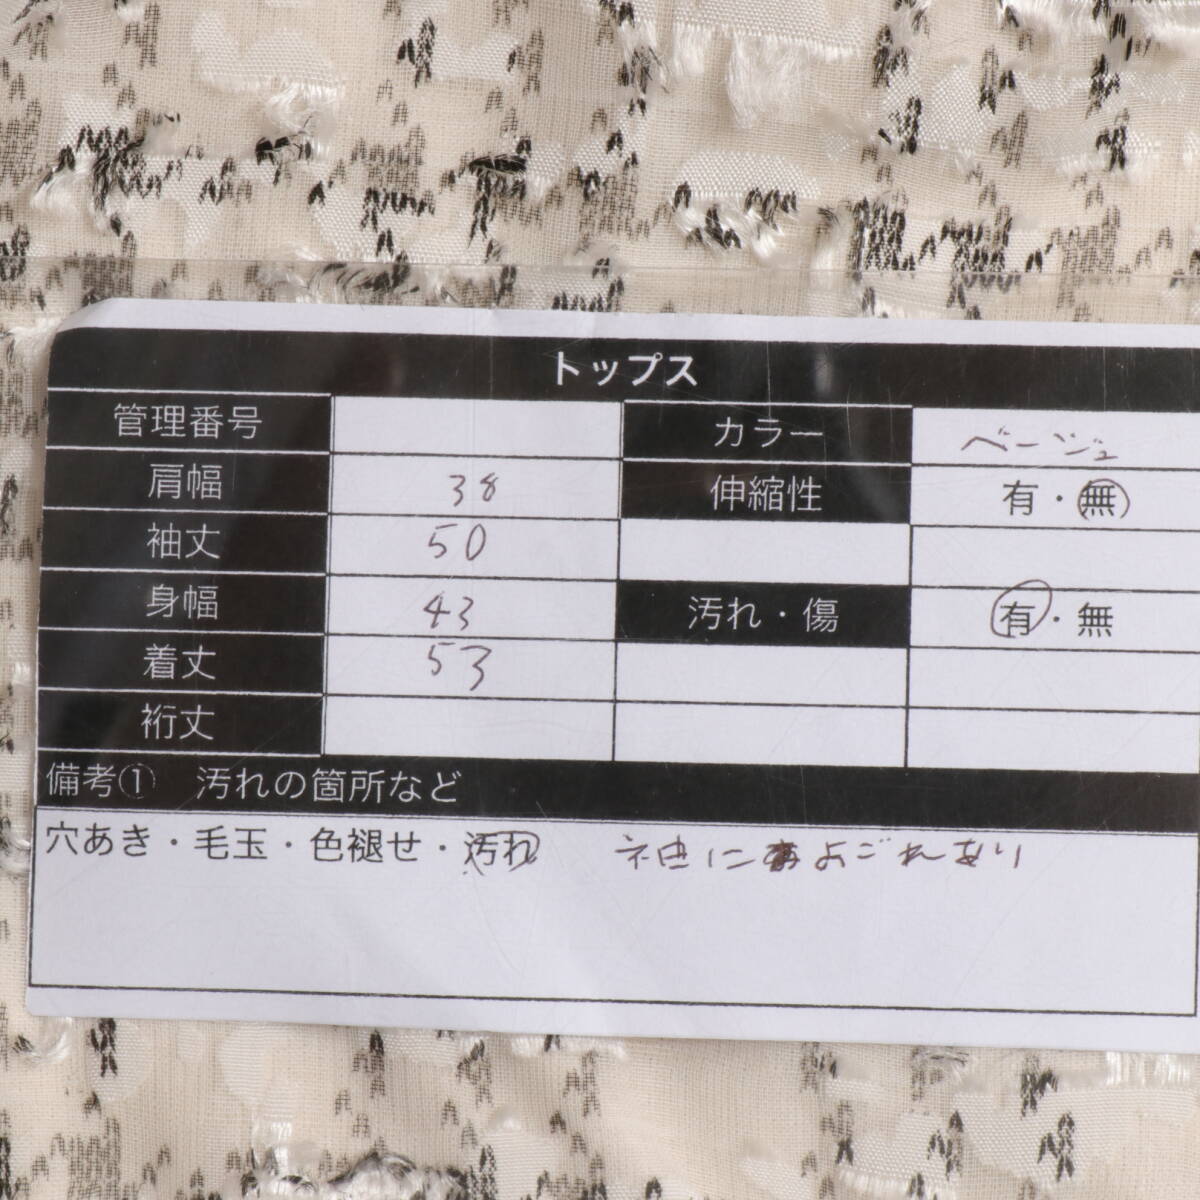 トップス
管理番号 カラー ベージュ
肩幅 38 伸縮性 有・無
袖丈 50
身幅 43 汚れ・傷 有・無
着丈 53
裄丈
備考① 汚れの箇所など
穴あき・毛玉・色褪せ・汚れ 袖によごれあり